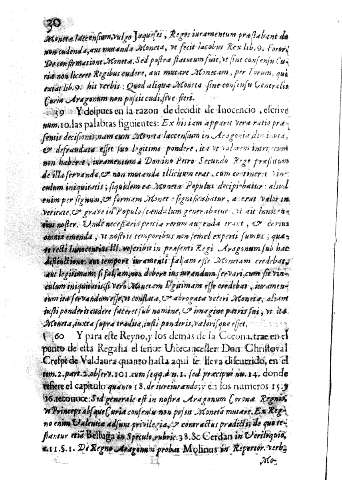 30
Moneta Iaccensium, vulgo Jaquesos, Reges iuramentum præstabant de
non cudenda, aut mutanda Moneta, ut fecit Iacobus Rex lib. 9. Foror.
De confirmatione Moneta. Sed postea statutum fuit, ut sine consensu Cu-
ria non liceret Regibus cudere, aut mutare Monetam, per Forum, qui
extat lib. 9. his verbis: Quod aliqua Moneta sine consensu Generalis
Curia Aragonum non possit cudi, sive fieri.
59 Y despues en la razon de decidir de Inocencio, escrive
num. 10. las palabras siguientes: Ex his iam apparet vera ratio præ-
sentis decisionis, nam cum Moneta Iaccensium in Aragonia diminuta,
& defraudata esset suo legitimo pondere, ita ut valorem intrinsecum
non haberet, iuramentum à Domino Petro Secundo Rege præstitum
de illa servanda, & non mutanda illicitum erat, cum contineret Vin-
culum iniquitatis; siquidem ea Moneta Populus decipiebatur: aliud
enim per signum, & formam Moneta significabatur, à erat valor in
veritate, & grave in Populo scandalum generabatur
noster. Unde necessario spectata rerum
omnino emenda, ut nostris temporibus non semel experti sumus, qua-
re vel si Innocentius III. rescribit in præsenti Regi Aragonum sub hac
distinctione, aut tempore iuramenti falsam esse Monetam credebat,
aut legitimam: si falsam, non debere iusiurandum servari, cum sit vin-
culum iniquitatis: si verò Monetam legitimam esse credebat, iuramen-
tum ita servandum esse, ut constata, & abrogata veteri Moneta, aliam
iusti ponderis cudere faceret sub nomine, & imagine patris sui, ut ita
Moneta, iuxta supra tradita, iusti ponderis, valorisque esset.
60 Y para este Reyno, y los demas de la Corona, trae en el
punto de esta Regalia el señor Vicecanceller Don Christoval
Crespi de Valdaura quanto hasta aqui se lleva discurrido, en el
tom. 2. part. 2. observ. 101. cum seqq. d. n. 1. sed præcipuè nu. 14. donde
refiere el capitulo quanto 18. de iureiurando; y en los numeros 15. y
16. reconoce: Sed generale est in nostra Aragonum Corona Regnis,
ut Principi absque Curia consensu non possit Moneta mutare. Ex Reg-
no enim Valentia adsunt privilegia, & contractus de quo te-
stantur etiã Belluga in Speculo, rubric. 38. & Cerdan in Veriloquio,
n. 11. §. 1. De Regno Aragonum probat Molinus in Repertor. verbo
Mo-